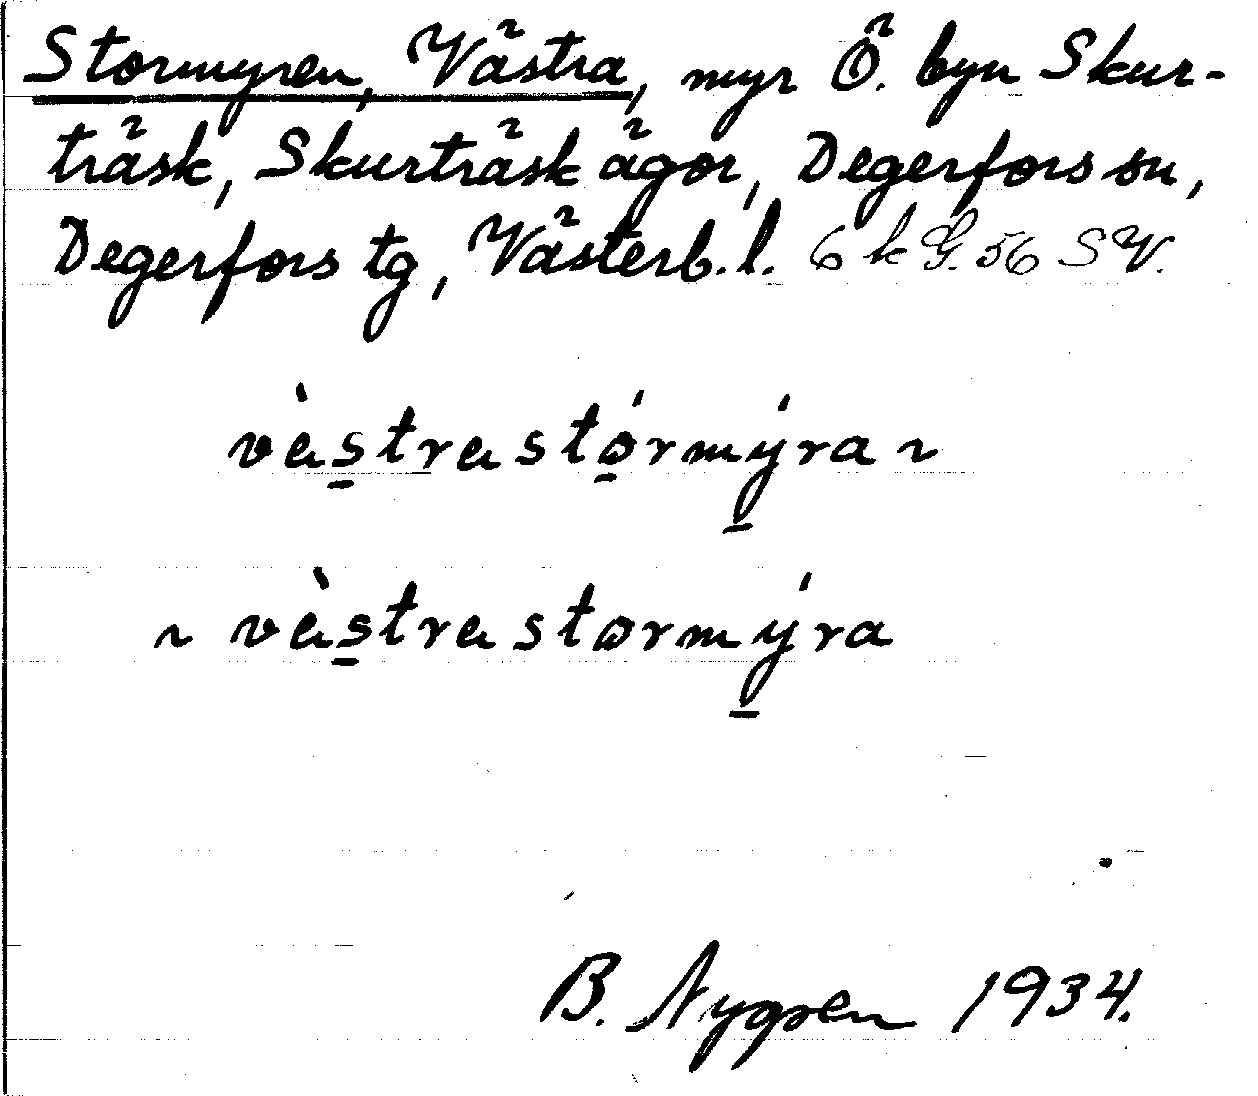 Stormyren, Västra, myr Ö. byn Skur-
träsk, Skurträsk ägor, Degerfors sn,
Degerfors tg, Västerb. l. 6 k G. 56 SV.
vàstrastórmýra ~
~ vàstrastormýra
B. Nygren 1934.